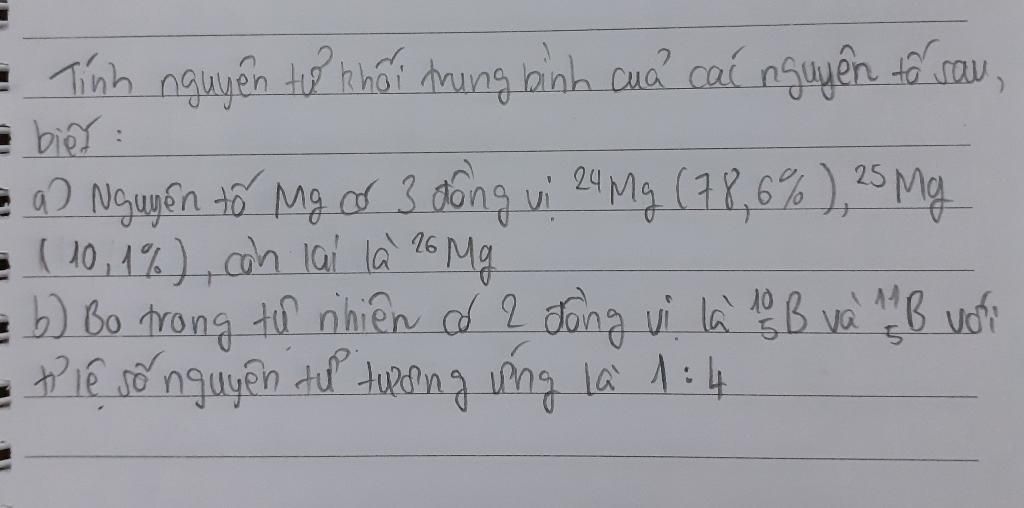 Tính nguyên tử khối trung bình cuả các nguyên tố sau,
biết :
a) Nguyên tố Mg có 3 đồng vị ²⁴Mg (78,6%), ²⁵Mg
(10,1%), còn lại là ²⁶Mg
b) Bo trong tự nhiên có 2 đồng vị là ¹⁰₅B và ¹¹₅B với
tỉ lệ số nguyên tử tương ứng là 1 : 4